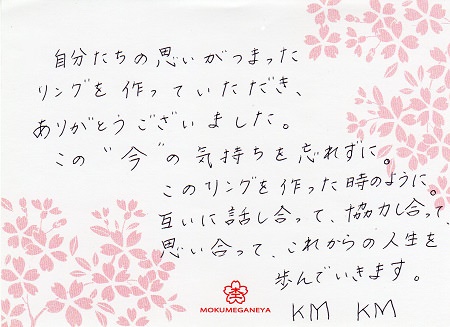 自分たちの思いがつまった
リングを作っていただき、
ありがとうございました。
この"今"の気持ちを忘れずに。
このリングを作った時のように。
互いに話し合って、協力し合って、
思い合って、これからの人生を
歩んでいきます。
KM KM
MOKUMEGANEYA